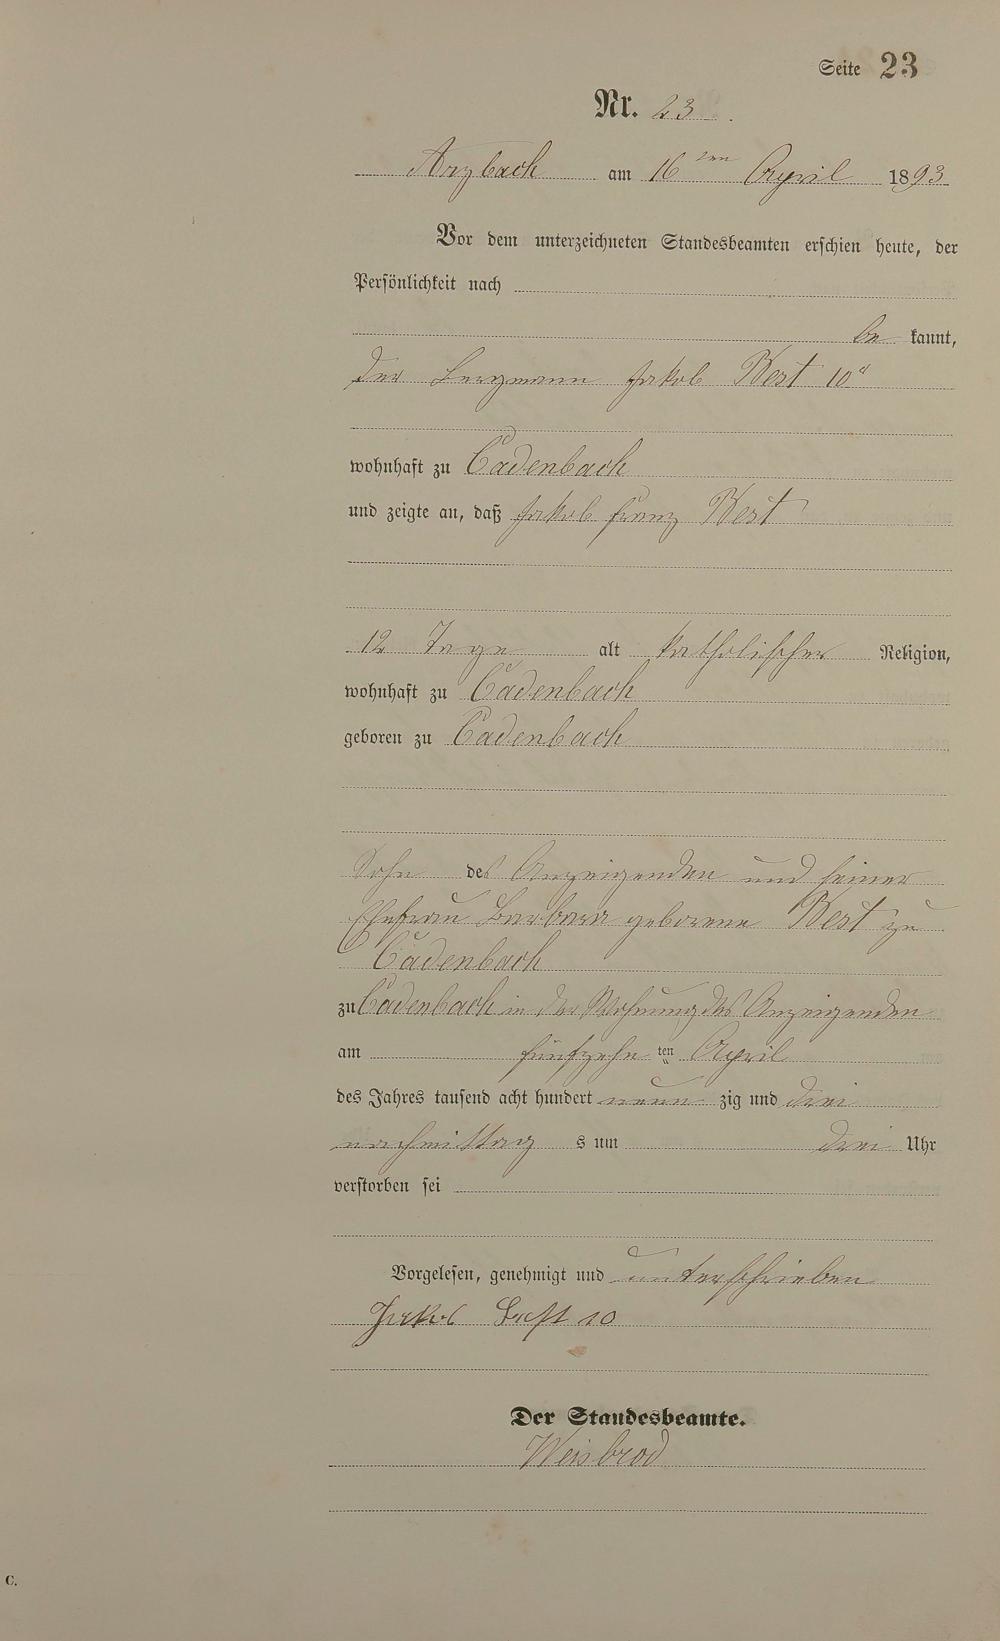 Seite 23
Nr. 23.
Arzbach am 16ten April 1893
Vor dem unterzeichneten Standesbeamten erschien heute, der
Persönlichkeit nach
be kannt,
der Bergmann Jakob Best 10r
wohnhaft zu Cadenbach
und zeigte an, daß Jakob Franz Best
12 Tage alt katholischer Religion,
wohnhaft zu Cadenbach
geboren zu Cadenbach
Sohn des Anzeigenden und seiner
Ehefrau Barbara geborene Best zu
Cadenbach
zu Cadenbach in der Wohnung des Anzeigenden
am fünfzehn ten April
des Jahres tausend acht hundert neun zig und drei
nachmittag s um drei Uhr
verstorben sei
Vorgelesen, genehmigt und unterschrieben
Jakob Best 10
Der Standesbeamte.
Weisbrod
C.